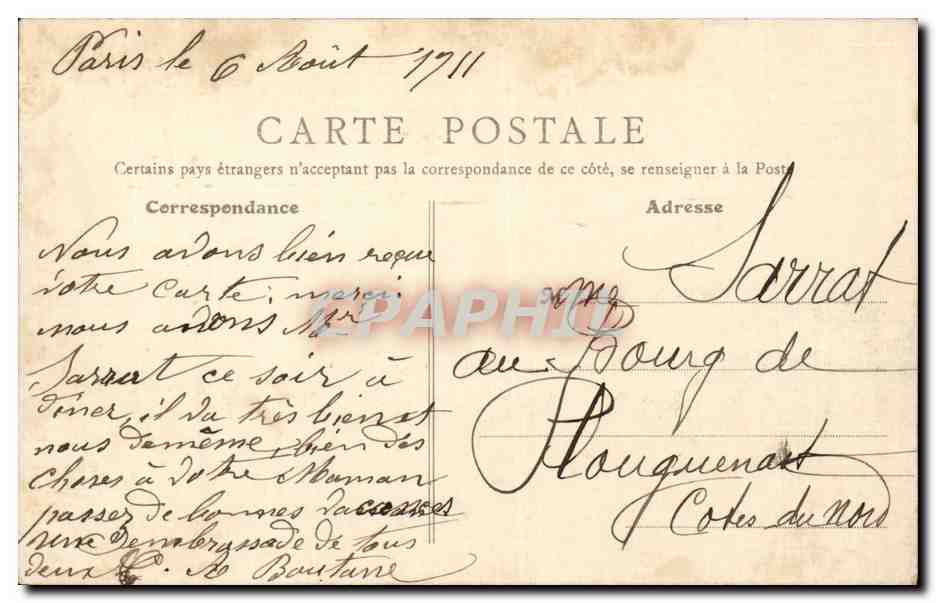 Paris le 6 Août 1911
CARTE POSTALE
Certains pays étrangers n'acceptant pas la correspondance de ce côté, se renseigner à la Poste
Correspondance
Adresse
Nous avons bien reçue
votre carte, merci
nous avons Mr
Sarrat ce soir à
diner, il va très bien et
nous de même, bien des
choses à votre Maman
passez de bonnes vacances
une embrassade de tous
deux A Boutarre
Mme Sarrat
au Bourg de
Plouguenast
Cotes du Nord
CPAPHIL